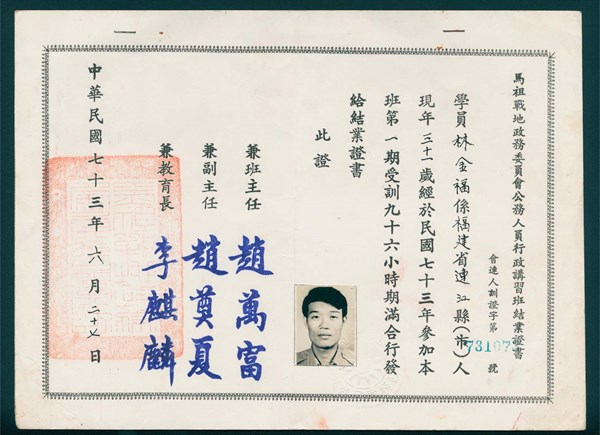 馬祖戰地政務委員會公務人員行政講習班結業證書
會連人訓證字第 731073 號
學員林金福係福建省連江縣(市)人
現年三十一歲經於民國七十三年參加本
班第一期受訓九十六小時期滿合行發
給結業證書
此證
兼班主任 趙萬富
兼副主任 趙奠夏
兼教育長 李麒麟
中華民國七十三年六月二十七日